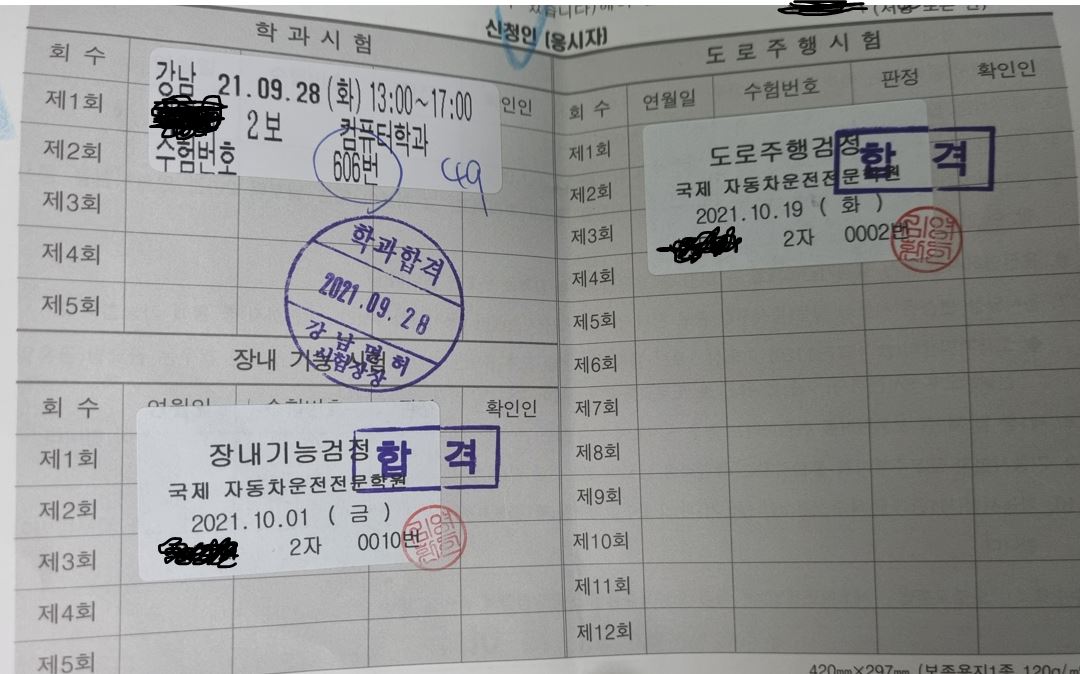 있습니다)
신청인 (응시자)
학 과 시 험
회 수
제1회
제2회
제3회
제4회
제5회
강남 21.09.28(화) 13:00~17:00
2보 컴퓨터학과
수험번호 606번
49
인인
학과합격
2021.09.28
강남면허
시험장장
장내 기능 시험
회 수 연월일 수험번호 판정 확인인
제1회
제2회
제3회
제4회
제5회
장내기능검정
합 격
국제 자동차운전전문학원
2021.10.01 ( 금 )
2자 0010번
도 로 주 행 시 험
회 수 연월일 수험번호 판정 확인인
제1회
제2회
제3회
제4회
제5회
제6회
제7회
제8회
제9회
제10회
제11회
제12회
도로주행검정
합 격
국제 자동차운전전문학원
2021.10.19 ( 화 )
2자 0002번
420㎜×297㎜ (보존용지1종 120g/㎡